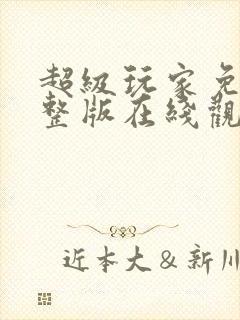 超級玩家免
整版在綫觀
近本大＆新川